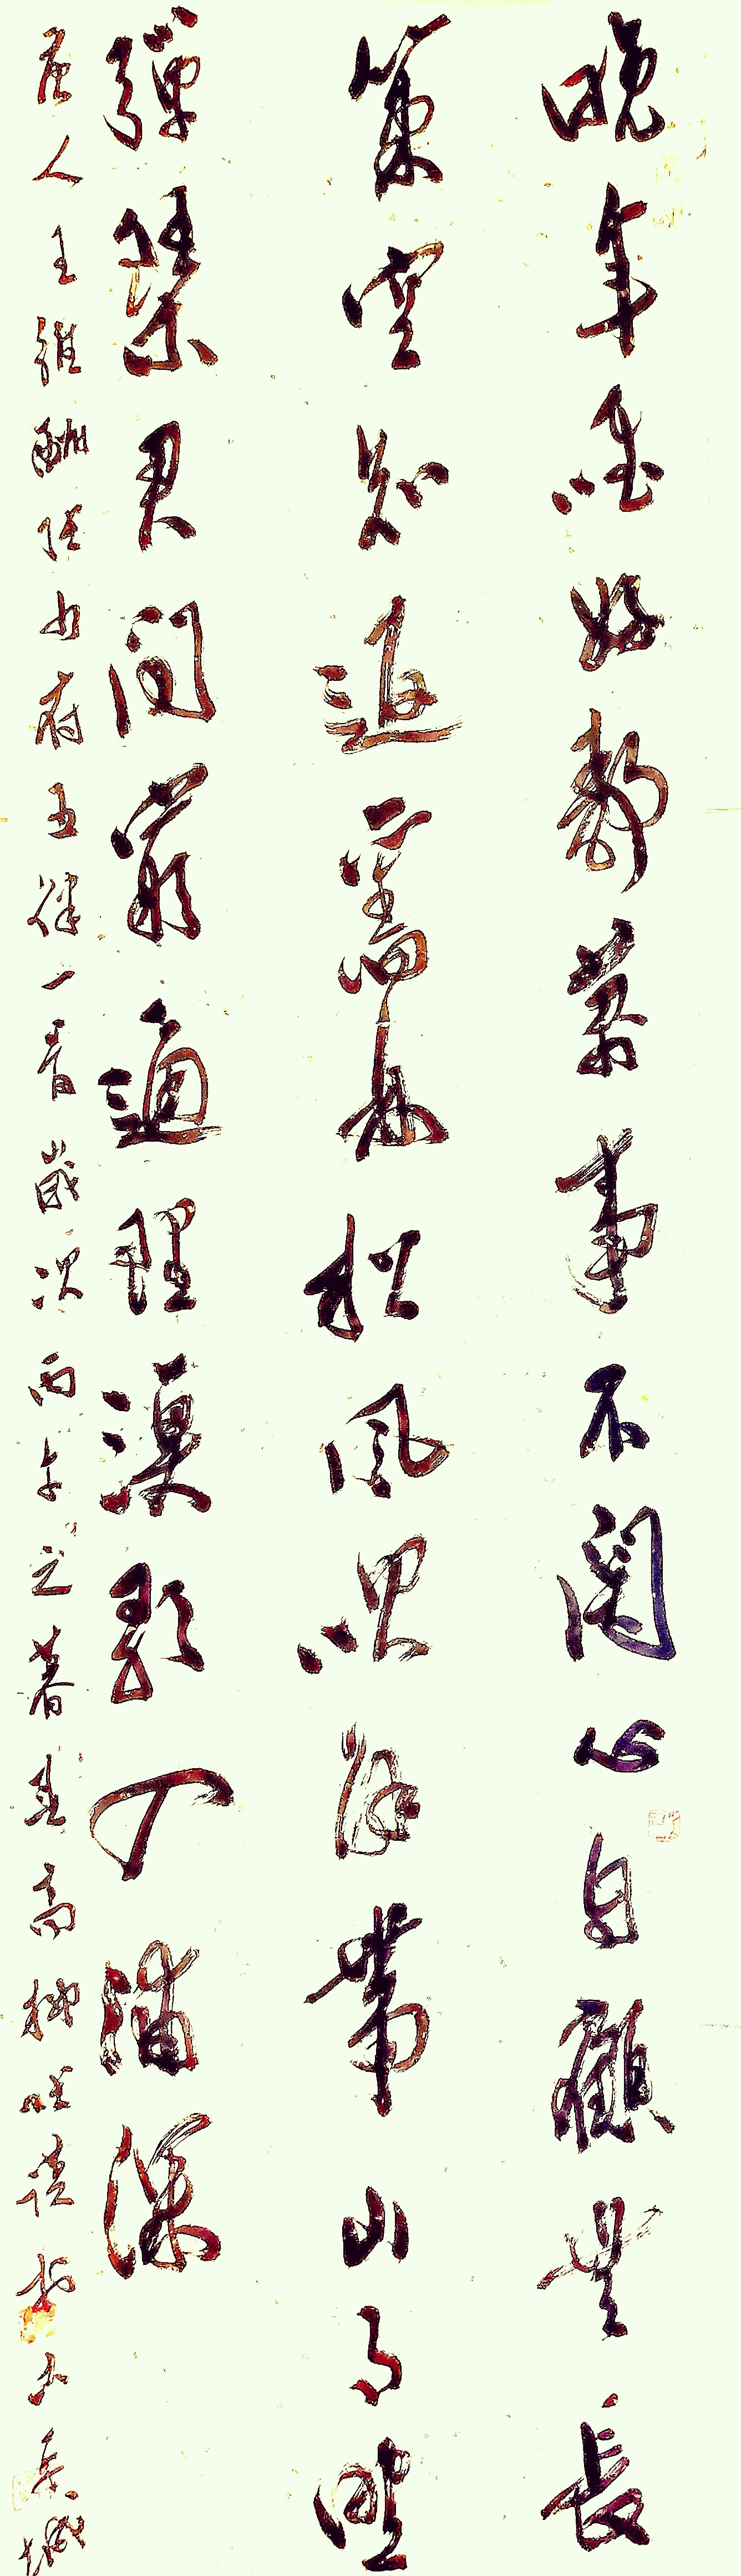 晚年唯好靜萬事不關心自顧無長
策空知返舊林松風吹解帶山月照
彈琴君問窮通理漁歌入浦深
唐人王維酬張少府五律一首歲次丙午之